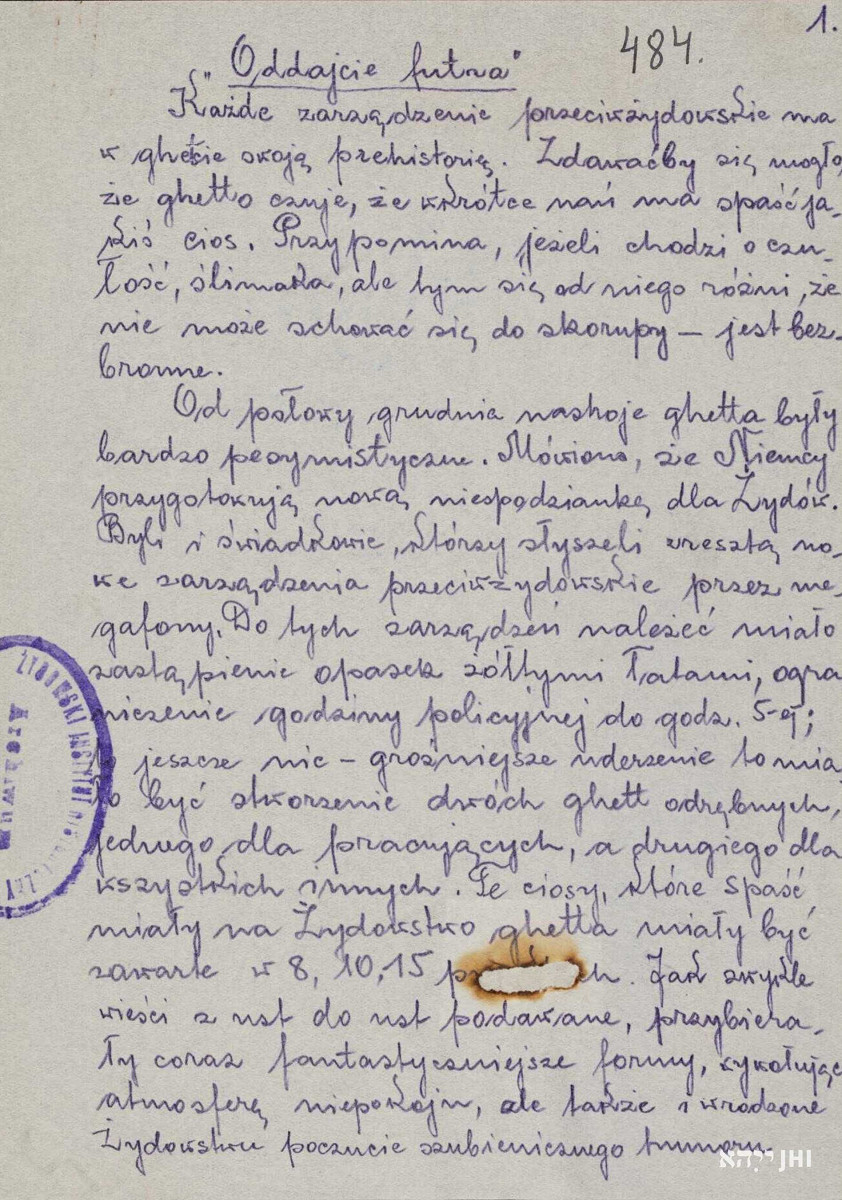 1.
484.
"Oddajcie futra"
Każde zarządzenie przeciwżydowskie ma
w ghetcie swoją prehistorię. Zdawaćby się mogło,
że ghetto czuje, że wkrótce nań ma spaść ja-
kiś cios. Przypomina, jeżeli chodzi o czu-
łość, ślimaka, ale tym się od niego różni, że
nie może schować się do skorupy — jest bez-
bronne.
Od połowy grudnia nastroje ghetta były
bardzo pesymistyczne. Mówiono, że Niemcy
przygotowują nową niespodziankę dla Żydów.
Byli i świadkowie, którzy słyszeli zresztą no-
we zarządzenia przeciwżydowskie przez me-
gafony. Do tych zarządzeń należeć miało
zastąpienie opasek żółtymi łatami, ogra
niczenie godziny policyjnej do godz. 5-ej;
to jeszcze nic – groźniejsze uderzenie to mia
ło być stworzenie dwóch ghett odrębnych,
jednego dla pracujących, a drugiego dla
wszystkich innych. Te ciosy, które spaść
miały na Żydowstwo ghetta miały być
zawarte w 8, 10, 15 . Jak zwykle
wieści z ust do ust podawane, przybiera-
ły coraz fantastyczniejsze formy, wywołując
atmosferę niepokoju, ale także i wrodzone
Żydowstwu poczucie szubienicznego humoru.
ŻYDOWSKI INSTYTUT
Archiwum
JHI